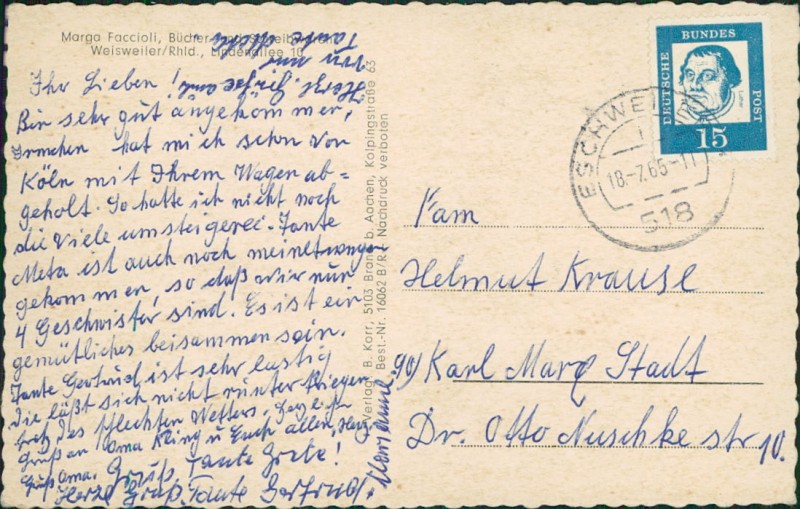 Marga Faccioli, Bücher- und
Weisweiler/Rhld., Lindenallee 10
Ihr Lieben!
Bin sehr gut angekommen,
Irmchen hat mich schon von
Köln mit Ihrem Wagen ab=
geholt. So hatte ich nicht noch
die viele umsteigerei. Tante
Meta ist auch noch meinetwegen
gekommen, so daß wir nun
4 Geschwister sind. Es ist ein
gemütliches beisammen sein.
Tante Gertrud ist sehr lustig
die läßt sich nicht runter kriegen
trotz des schlechten Wetters. Herzlich
Gruß an Oma Kling u Euch allen, Herzl
Gruß Oma. Gruß, Tante Grete!
Herzl Gruß. Tante Gertrud.
Herzl. Grüße
von
Tante Meta
Verlag B. Korr, 5103 Brand b. Aachen, Kolpingstraße 63
Best.-Nr. 16062 B/R Nachdruck verboten
DEUTSCHE
BUNDES
POST
15
ESCHWEI
18.-7.65-11
518
Fam
Helmut Krause
90 Karl Marx Stadt
Dr. Otto Nuschke str 10.